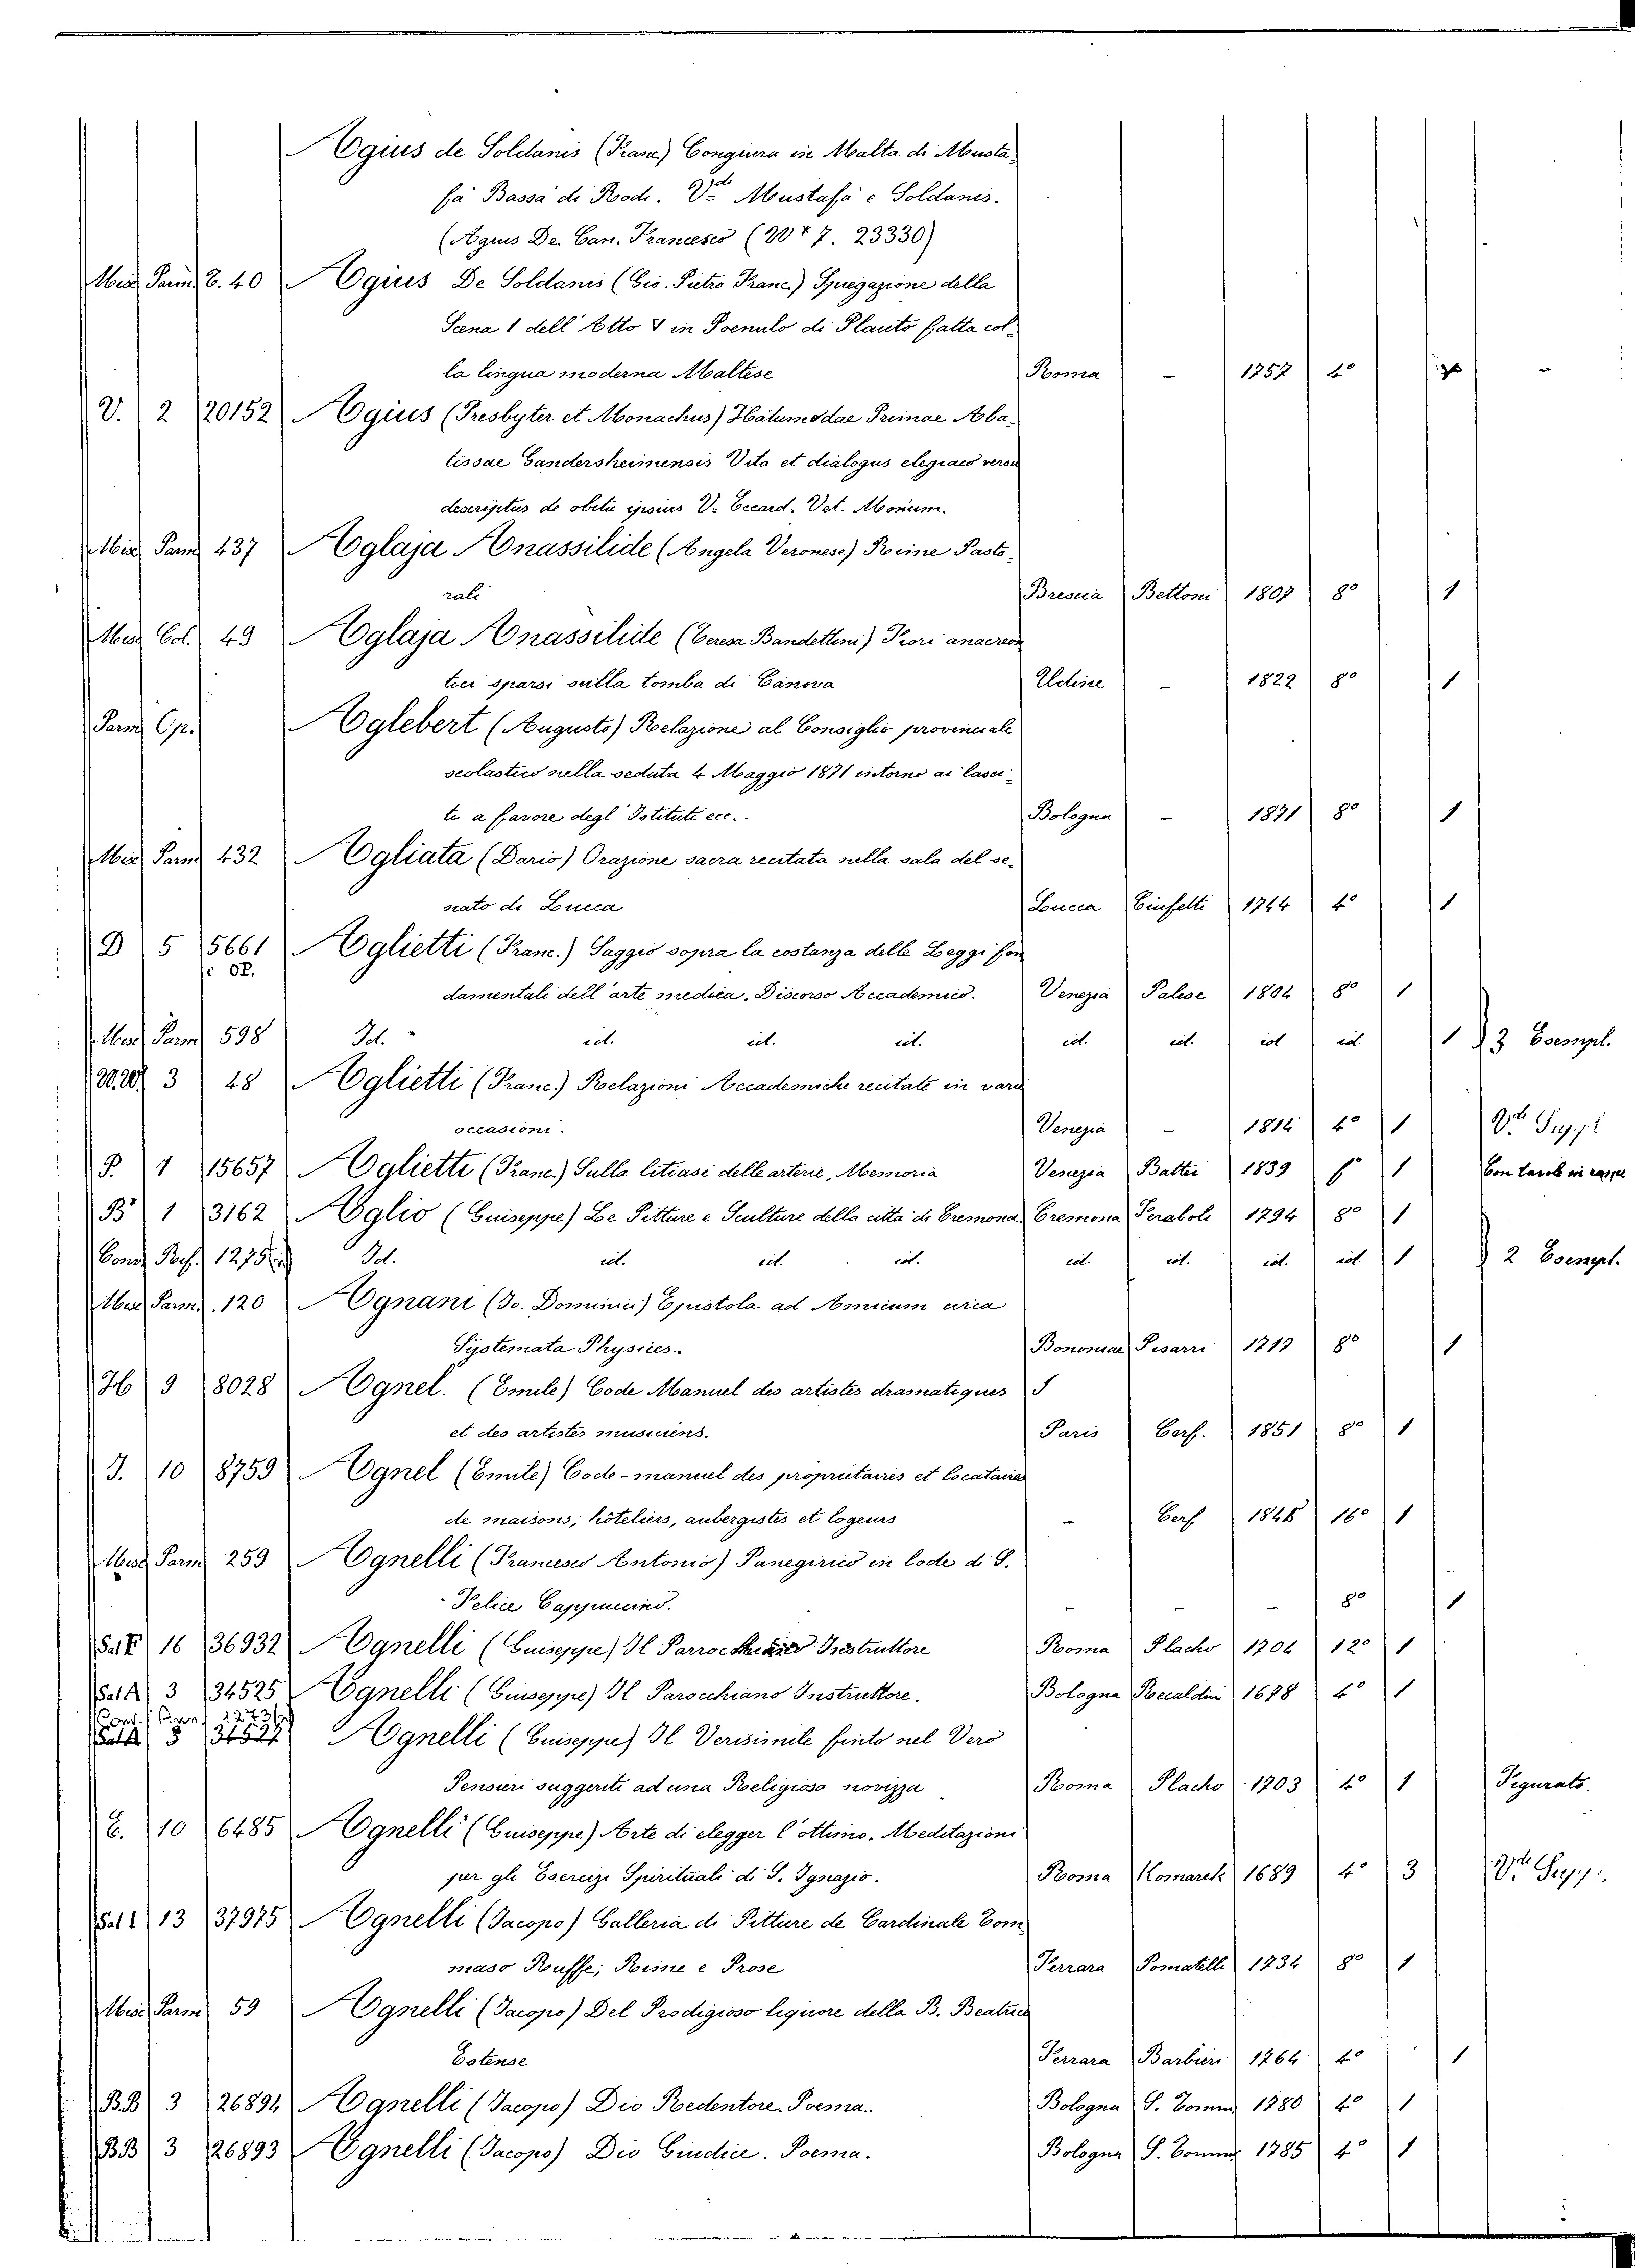 Agius de Soldanis (Franc) Congiura in Malta di Musta-
fà Bassà di Rodi. Vde Mustafà e Soldanis.
(Agius De. Can. Francesco (20 7. 23330)
Misc Parm E. 40 Agius De Soldanis (Gio. Pietro Franc) Spiegazione della
Scena 1 dell'Atto V in Poenulo di Plauto fatta col-
la lingua moderna Maltese Roma - 1757 4°
V. 2 20152 Agius (Presbyter et Monachus) Hatumodae Primae Aba-
tissae Gandersheimensis Vita et dialogus elegiaco versu
descriptus de obitu ipsius V. Eccard. Vet. Monum.
Misc Parm 437 Aglaja Anassilide (Angela Veronese) Rime Pasto-
rali Brescia Bettoni 1807 8° 1
Misc Col. 49 Aglaja Anassilide (Teresa Bandettini) Fiori anacreon
tici sparsi sulla tomba di Canova Udine - 1822 8° 1
Parm Op. Aglebert (Augusto) Relazione al Consiglio provinciale
scolastico nella seduta 4 Maggio 1871 intorno ai lasci-
ti a favore degl'Istituti ecc. Bologna - 1871 8° 1
Misc Parm 432 Agliata (Dario) Orazione sacra recitata nella sala del se-
nato di Lucca Lucca 1744 4° 1
D 5 5661 Aglietti (Franc.) Saggio sopra la costanza delle Leggi fon
damentali dell'arte medica. Discorso Accademico. Venezia Palese 1804 8° 1
Misc Parm 598 Id. id. id. id. id. id. id id. 1 3 Esempl.
20.20. 3 48 Aglietti (Franc.) Relazioni Accademiche recitate in varie
occasioni. Venezia - 1814 4° 1 Vde Suppl
P. 1 15657 Aglietti (Franc.) Sulla litiasi delle arterie, Memoria Venezia Battei 1839 f° 1 Con tavole in rame
B 1 3162 Aglio (Guiseppe) Le Pitture e Sculture della città di Cremona. Cremona Feraboli 1794 8° 1
Cons Ref. 1275 Id. id. id. id. id. id. id. id. 1 2 Esempl.
Misc Parm. 120 Agnani (Jo. Dominici) Epistola ad Amicum circa
Systemata Physices. Bononiae Pisarri 1717 8° 1
H 9 8028 Agnel. (Emile) Code Manuel des artistes dramatiques
et des artistes musiciens. Paris Cerf. 1851 8° 1
J. 10 8759 Agnel (Emile) Code-manuel des propriétaires et locataires
de maisons; hôteliers, aubergistes et logeurs - Cerf 1848 16° 1
Misc Parm 259 Agnelli (Francesco Antonio) Panegirico in lode di S.
Felice Cappuccino. - - - 8° 1
Sal F 16 36932 Agnelli (Guiseppe) Il Parrocchiano Instruttore Roma Placho 1704 12° 1
Sal A 3 34525 Agnelli (Giuseppe) Il Parocchiano Instruttore. Bologna Recaldini 1678 4° 1
Agnelli (Guiseppe) Il Verisimile finto nel Vero
Pensieri suggeriti ad una Religiosa novizza Roma Placho 1703 4° 1 Figurato.
E. 10 6485 Agnelli (Guiseppe) Arte di elegger l'ottimo. Meditazioni
per gli Esercizi Spirituali di S. Ignazio. Roma Komarek 1689 4° 3 Vde Supp.
Sal I 13 37975 Agnelli (Jacopo) Galleria di Pitture de Cardinale Tom-
maso Ruffo; Rime e Prose Ferrara Pomatelli 1734 8° 1
Misc Parm 59 Agnelli (Jacopo) Del Prodigioso liquore della B. Beatrice
Estense Ferrara Barbieri 1764 4° 1
B.B 3 26894 Agnelli (Jacopo) Dio Redentore. Poema. Bologna S. Tomm 1780 4° 1
B.B 3 26893 Agnelli (Jacopo) Dio Giudice. Poema. Bologna S. Tomm 1785 4° 1